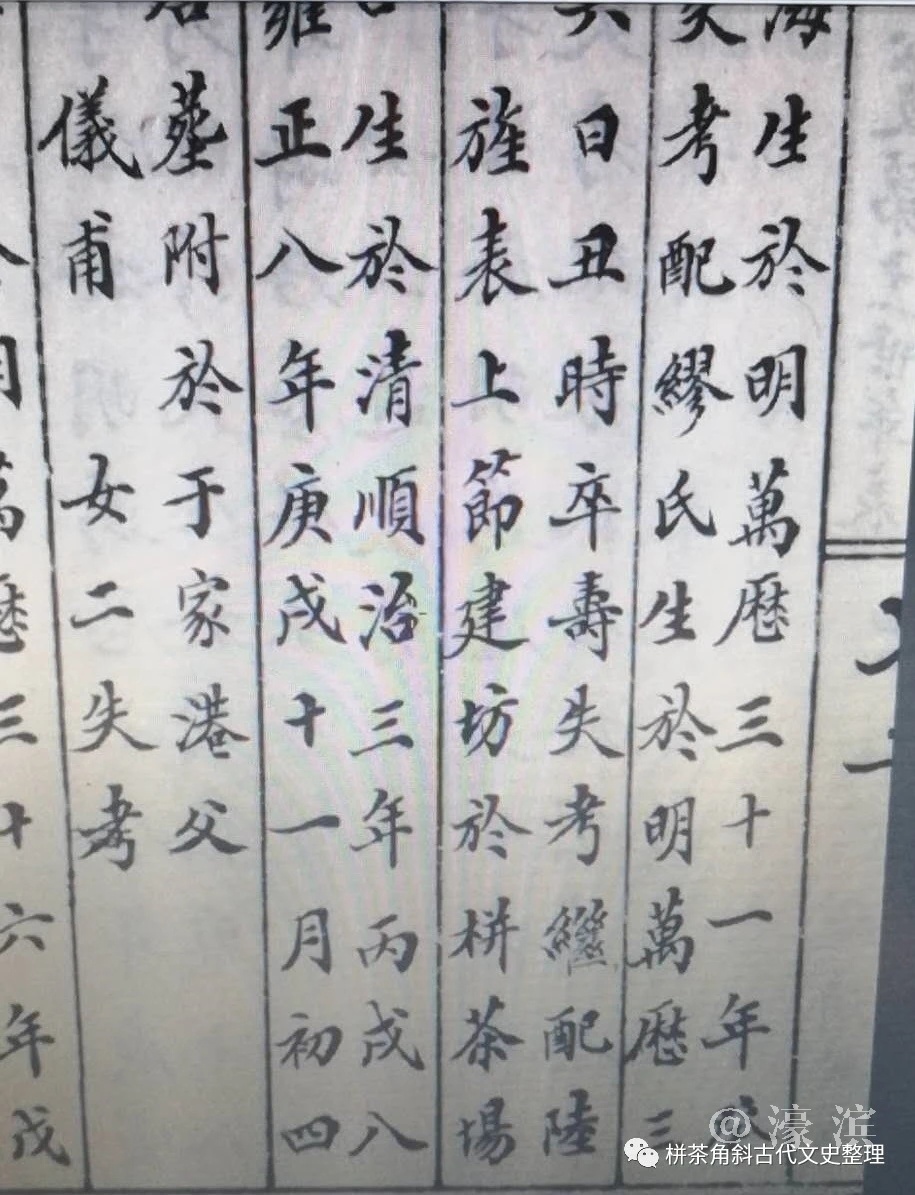 生於明萬歷三十一年
考配繆氏生於明萬歷三
日丑時卒壽失考繼配陸
旌表上節建坊於栟茶場
生於清順治三年丙戌八
雍正八年庚戌十一月初四
墓附於于家港父
儀甫 女二失考
月萬歷三十六年戊
@濠滨
栟茶角斜古代文史整理